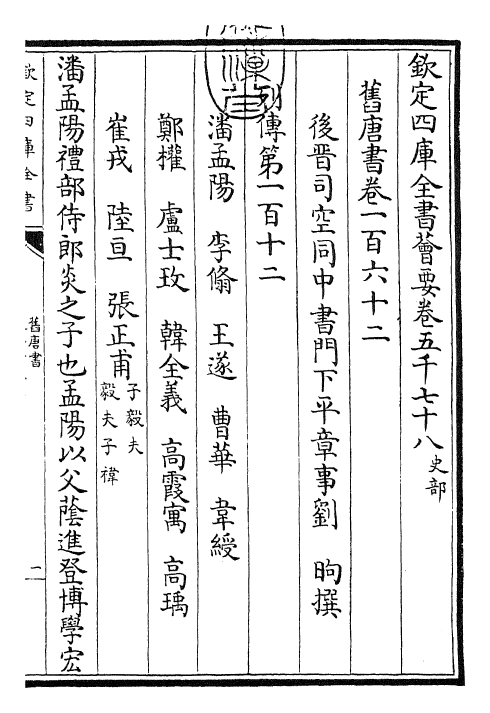 欽定四庫全書薈要卷五千七十八 史部
舊唐書卷一百六十二
後晉司空同中書門下平章事劉 昫撰
列傳第一百十二
潘孟陽 李翛 王遂 曹華 韋綬
鄭權 盧士玫 韓全義 高霞寓 高瑀
崔戎 陸亘 張正甫 子毅夫 毅夫子禕
潘孟陽禮部侍郎炎之子也孟陽以父蔭進登博學宏
欽定四庫全書
舊唐書
一